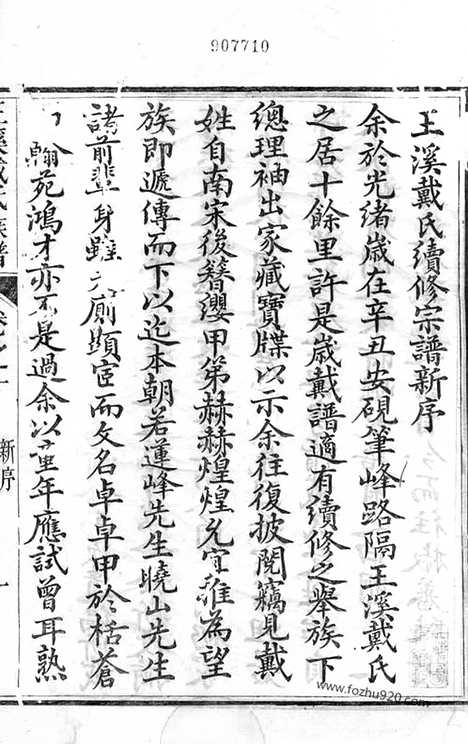 907710
王溪戴氏續修宗譜新序
余於光緒歲在辛丑安硯筆峰路隔王溪戴氏
之居十餘里許是歲戴譜適有續修之舉族下
總理袖出家藏寶牒以示余往復披閱竊見戴
姓自南宋後簪纓甲第赫赫煌煌允宜推為望
族即遞傳而下以迄本朝若蓮峰先生曉山先生
諸前輩身雖 廟顯宦而文名卓卓甲於栝蒼
翰苑鴻才亦不是過余以童年應試曾耳熟
王溪戴氏族譜
卷之一
新序
一
www.fozhu920.com